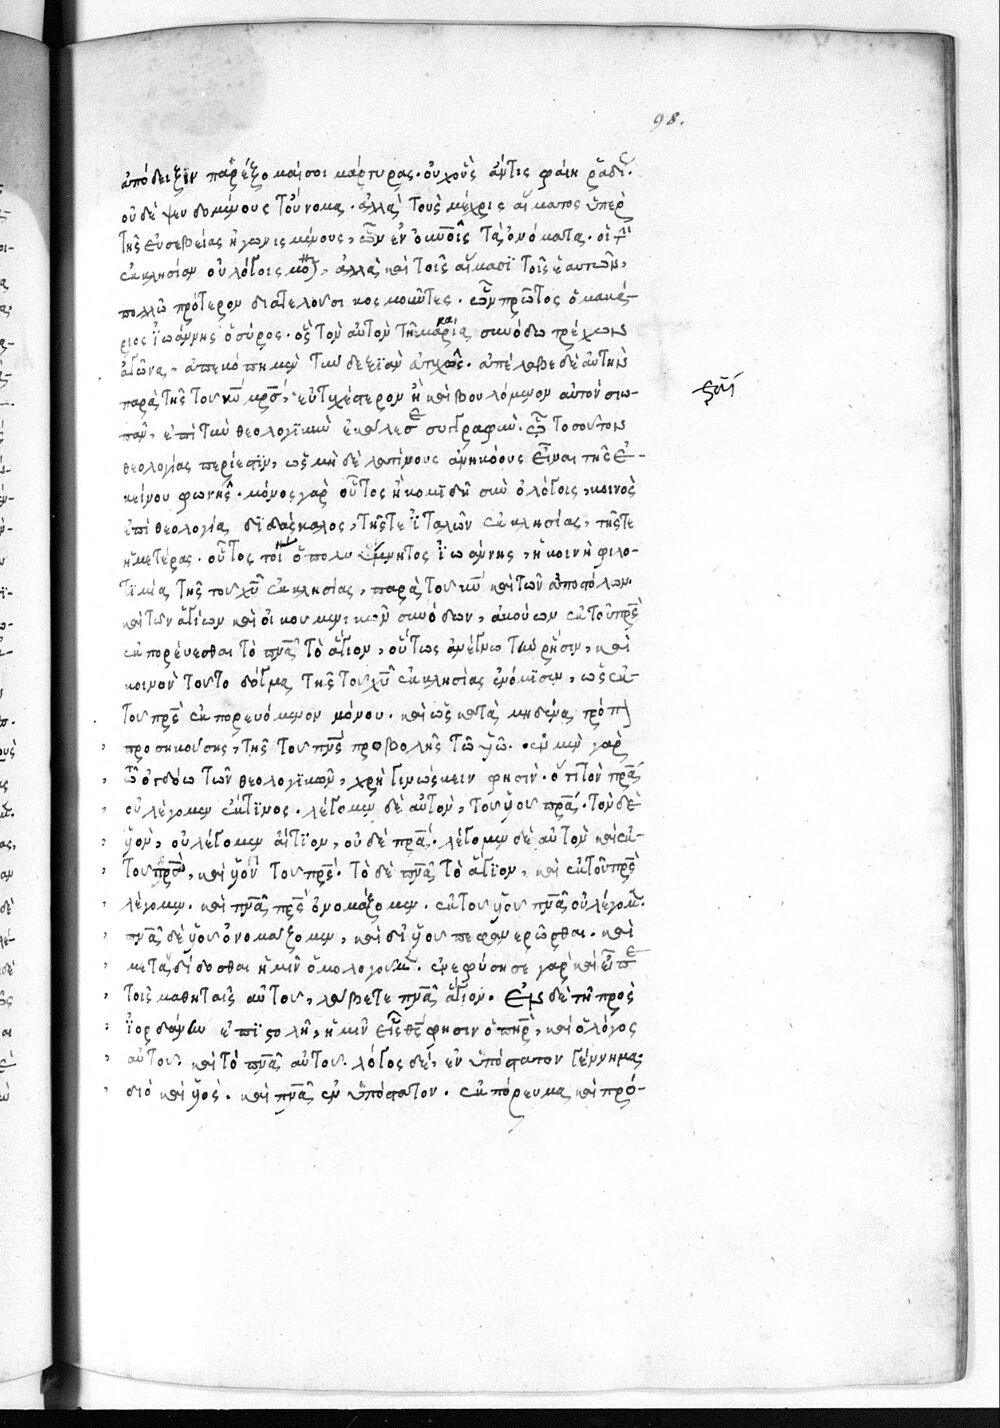 98.
ἀπόδειξιν παρέξομαί σοι μάρτυρας· οὐχ οὓς ἄν τις φαίη ῥαδί
οὐδὲ ψευδομένους τοὔνομα· ἀλλὰ τοὺς μέχρις αἵματος ὑπὲρ
τῆς εὐσεβείας ἠγωνισμένους, ὧν ἐν οὐνοῖς τὰ ὀνόματα· οἳ τὴν
ἐκκλησίαν οὐ λόγοις μόνον, ἀλλὰ καὶ τοῖς αἵμασι τοῖς ἑαυτῶν,
πολλῷ πρότερον διατελοῦσι κοσμοῦντες· ὧν πρῶτος ὁ μακά-
ριος ἰωάννης ὁ σύρος· ὃς τὸν αὐτὸν τῇ μακαρίᾳ συνόδῳ τρέχων
ἀγῶνα, ἀπεκόπη μὲν τὴν δεξιὰν ἀπίχθς· ἀπέλαβε δὲ αὐτὴν
παρὰ τῆς τοῦ κυ μρσ, εὐτυχέστερον ἢ καὶ βουλόμενον αὐτὸν σιω-
πᾶν, ἐπὶ τὴν θεολογικὴν ἐκάλεσε συγγραφήν· ᾧ τοσοῦτον
θεολογίας περίεστιν, ὡς μηδὲ λατίνους ἀνηκόους εἶναι τῆς ἐ-
κείνου φωνῆς· μόνος γὰρ οὗτος ἠκομιδῆ σὺν ὀλίγοις, κοινὸς
ἐπὶ θεολογίᾳ διδάσκαλος, τῆς τε ἰταλῶν ἐκκλησίας, τῆς τε
ἡμετέρας· οὗτος τοίνυν ὁ πολυύμνητος ἰωάννης, ἡ κοινὴ φιλο-
τιμία τῆς τοῦ χυ ἐκκλησίας, παρὰ τοῦ κυ καὶ τῶν ἀποστόλων
καὶ τῶν ἁγίων καὶ οἰκουμενικῶν συνόδων, ἀκούων ἐκ τοῦ πρς
ἐκπορεύεσθαι τὸ πνα τὸ ἅγιον, οὕτως ἀνέγνω τὴν ῥῆσιν, καὶ
κοινὸν τοῦτο δόγμα τῆς τοῦ χυ ἐκκλησίας ἐνόμισεν, ὡς ἐκ
τοῦ πρς ἐκπορευόμενον μόνου· καὶ ὡς κατὰ μηδένα τρόπον
προσηκούσης, τῆς τοῦ πνς προβολῆς τῷ υω· ἐν μὲν γὰρ
τῷ ὀγδόῳ τῶν θεολογικῶν, χρὴ γινώσκειν φησὶν· ὅτι τὸν πρα
οὐ λέγομεν ἔκ τινος· λέγομεν δὲ αὐτὸν, τοῦ υου πρα· τὸν δὲ
υον, οὐ λέγομεν αἴτιον, οὐδὲ πρα· λέγομεν δὲ αὐτὸν καὶ ἐκ
τοῦ πρς, καὶ υον τοῦ πρς· τὸ δὲ πνα τὸ ἅγιον, καὶ ἐκ τοῦ πρς
λέγομεν· καὶ πνα πρς ὀνομάζομεν· ἐκ τοῦ υου πνα οὐ λέγομεν·
πνα δὲ υου ὀνομάζομεν, καὶ δι υου πεφανερῶσθαι· καὶ
μεταδίδοσθαι ἡμῖν ὁμολογοῦμεν· ἐνεφύσησε γὰρ καὶ εἶπε
τοῖς μαθηταῖς αὐτοῦ, λάβετε πνα ἅγιον· Ἐν δὲ τῇ πρὸς
ἰορδάνην ἐπιστολῇ, ἡμῖν εἷς θς φησὶν ὁ πηρ, καὶ ὁ λόγος
αὐτοῦ· καὶ τὸ πνα αὐτοῦ· λόγος δὲ, ἐνυπόστατον γέννημα·
διὸ καὶ υος· καὶ πνα ἐνυπόστατον· ἐκπόρευμα καὶ πρό-